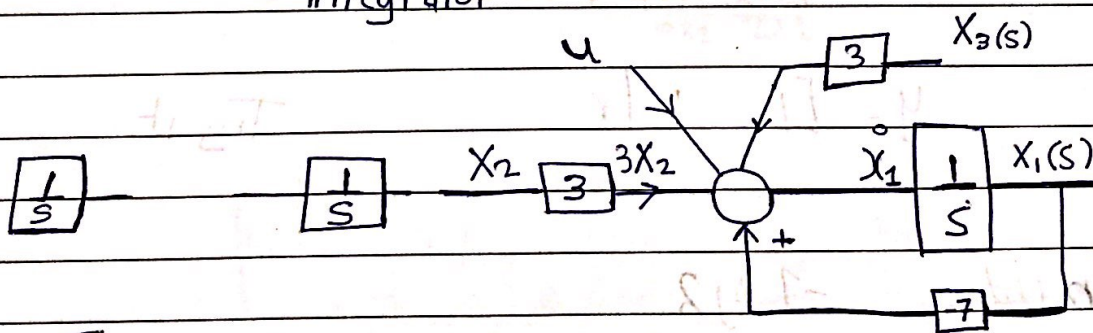 integrator
u
3 X3(s)
1/s 1/s X2 3 3X2 ẋ1 1/s X1(s)
+
-7